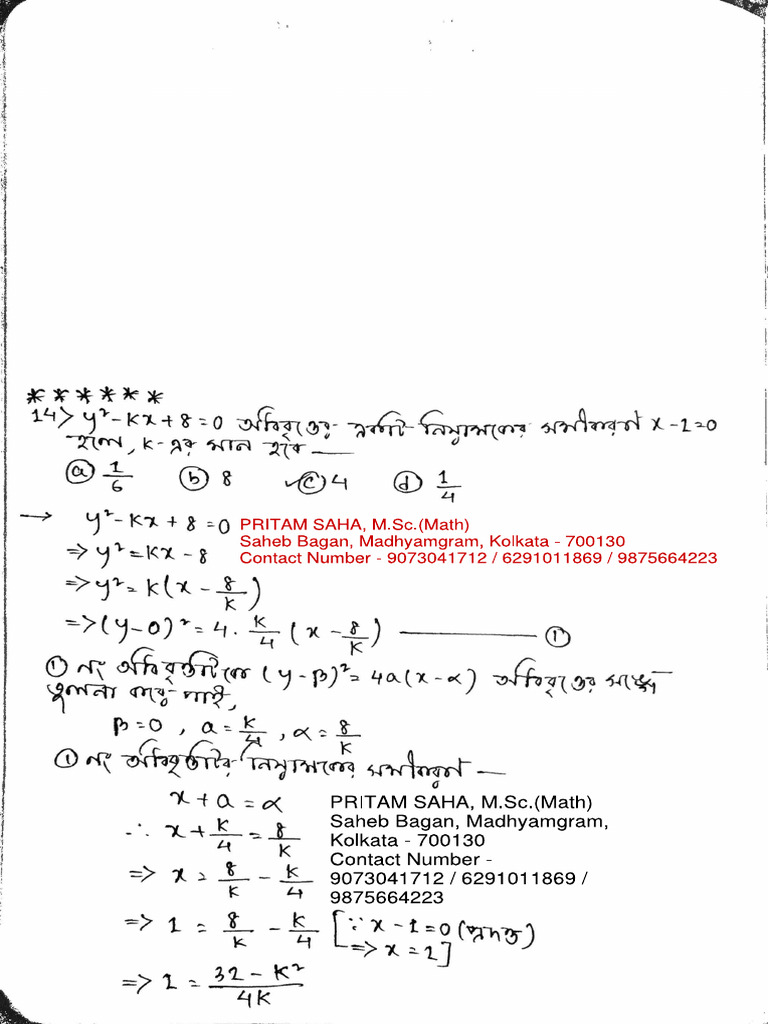 ******
14> y²-kx+8=0 অধিবৃত্তের একটি নিয়ামকের সমীকরণ x-1=0
হলে, k-এর মান হবে —
ⓐ 1/6 ⓑ 8 ✓ⓒ 4 ⓓ 1/4
→ y²-kx+8=0 PRITAM SAHA, M.Sc.(Math)
Saheb Bagan, Madhyamgram, Kolkata - 700130
=> y²=kx-8 Contact Number - 9073041712 / 6291011869 / 9875664223
=> y²=k(x - 8/k)
=> (y-0)²=4. k/4 (x - 8/k) ——— ①
① নং অধিবৃত্তটিকে (y-β)²=4a(x-α) অধিবৃত্তের সঙ্গে
তুলনা করে পাই,
β=0, a=k/4, α=8/k
① নং অধিবৃত্তটির নিয়ামকের সমীকরণ —
x+a=α
∴ x+k/4=8/k
=> x=8/k - k/4
=> 1=8/k - k/4 [∵ x-1=0 (প্রদত্ত)
=> x=1]
=> 1=(32-k²)/4k
PRITAM SAHA, M.Sc.(Math)
Saheb Bagan, Madhyamgram,
Kolkata - 700130
Contact Number -
9073041712 / 6291011869 /
9875664223